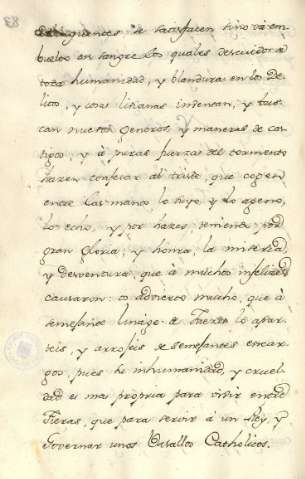 83
se satisfacen sino vá em
bueltos en sangre los quales descuidor a
toda humanidad, y blandura en los de
litos, y cosas libianas indentan, y bus
can nuestros generos y maneras de cas
tigos, y á puras fuerzas del tormento
hazen confesar al triste, que cogen
entre las manos lo suyo y lo ageno,
lo echo, y por hazer, teniendo por
gran gloria, y honrra, la miseria,
y desventura, que á muchos infelices
causaron: os advierto mucho, que á
semejante linage de fieras lo apar
teis, y arrojeis de semejantes encar
gos, pues la inhumanidad, y cruel
dad es mas propria para vivir entre
Fieras, que para servir á un Rey, y
Governar unos Vasallos Catholicos.